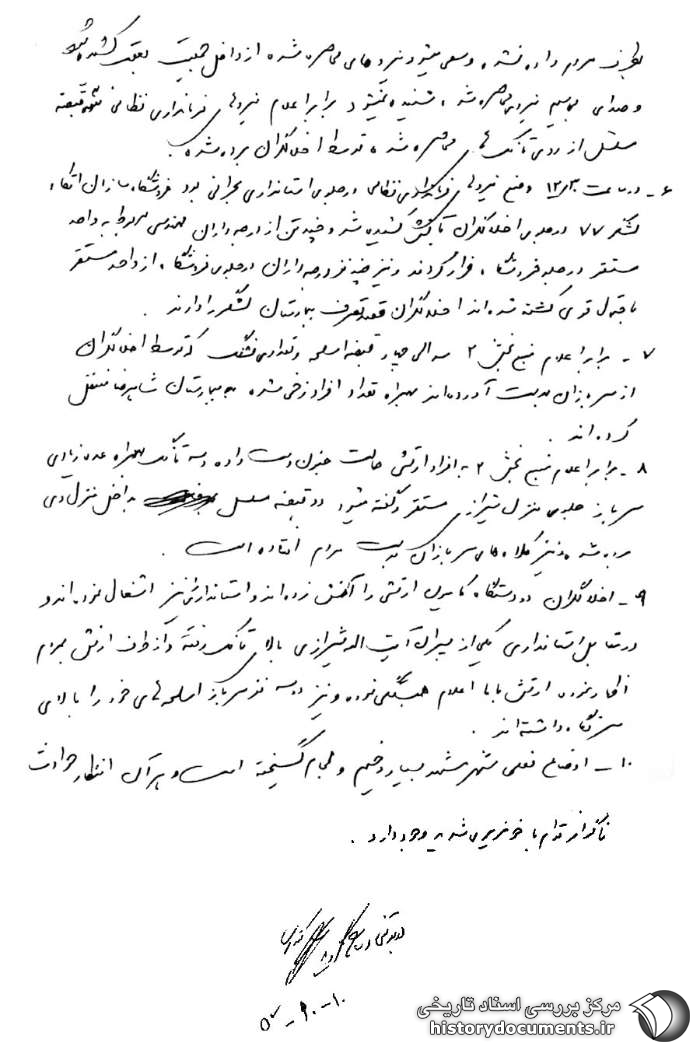 بطرف مردم داده نشد، وسعی میشود نیروهای محاصره شده از داخل جمعیت بعقب کشیده شود
و صدای بیسیم نیروی محاصره شده شنیده نمیشود برابر اعلام نیروهای فرمانداری نظامی قبضه
مسلسل از روی تانک های محاصره شده توسط اخلالگران برده شده.
۶- در ساعت ۱۲۳۰ وضع نیروهای فرمانداری نظامی در جلوی استانداری بحرانی بود فروشگاه سازمان اتکاء
لشکر ۷۷ در جلوی اخلالگران بآتش کشیده شد و چند تن از درجه داران مهندسی مربوط به واحد
مستقر در جلو فروشگاه، فرار کردند و نیز چند نفر درجه داران در جلوی فروشگاه، از واحد مستقر
باحتمال قوی کشته شده اند اخلالگران قصد تصرف بیمارستان لشگر را دارند.
۷- برابر اعلام منبع بخش ۲ سه الی چهار قبضه اسلحه و تعدادی فشنگ که توسط اخلالگران
از سربازان بدست آورده اند بهمراه تعداد افراد زخمی شده به بیمارستان شاهرضا منتقل
کرده اند.
۸- برابر اعلام منبع بخش ۲ به افراد ارتش حالت جنون دست داده و سه تانک بهمراه عده زیادی
سرباز جلوی منزل شیرازی مستقر و گفته میشود دو قبضه مسلسل بداخل منزل وی
برده شده و نیز کلاه های سربازان بدست مردم افتاده است.
۹- اخلالگران دو دستگاه کامیون ارتشی را آتش زده اند و استانداری را نیز اشغال نموده اند و
در مقابل استانداری یکی از پسران آیت الله شیرازی بالای تانک رفته و از طرف ارتش بمردم
اظهار نموده ارتش با ما اعلام همبستگی نموده و نیز دو سه نفر سرباز اسلحه های خود را بالای
سر نگاه داشته اند.
۱۰- اوضاع فعلی شهر مشهد بسیار وخیم و لجام گسیخته است و هر آن انتظار حوادث
ناگوار توام با خونریزی شدید وجود دارد.
۱۰-۱۰-۵۷
مرکز بررسی اسناد تاریخی
historydocuments.ir